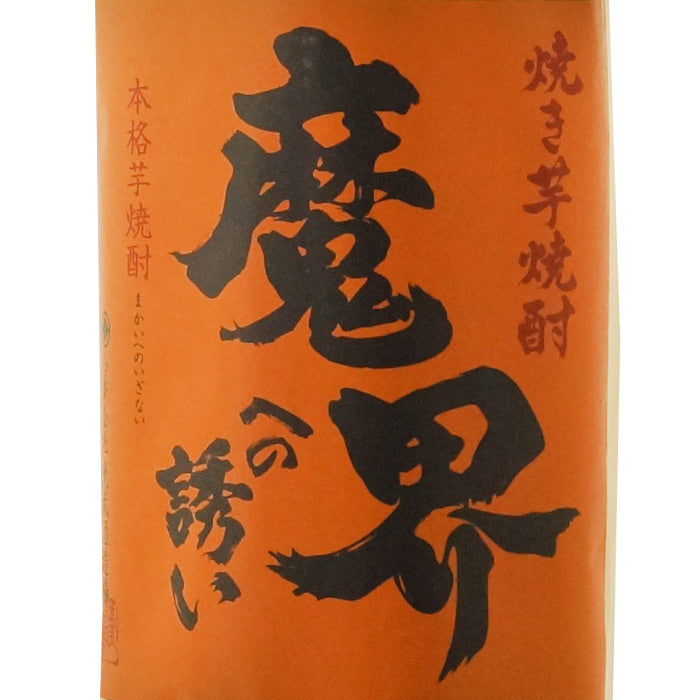 焼き芋焼酎
魔界
への
誘い
本格芋焼酎
まかいへのいざない